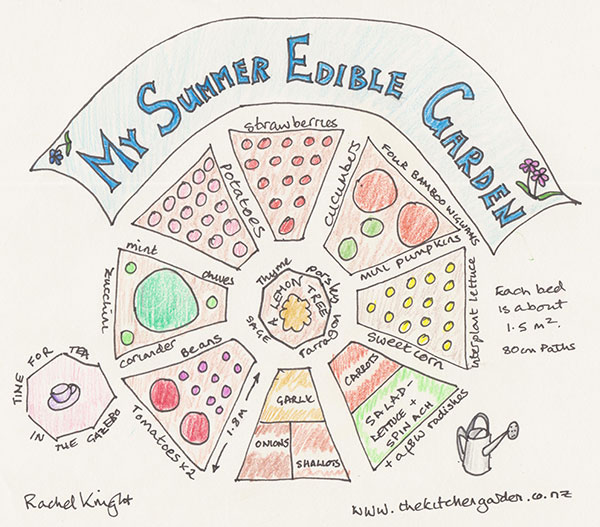 MY SUMMER EDIBLE GARDEN
strawberries
potatoes
cucumbers
FOUR BAMBOO WIGWAMS
mini pumpkins
mint
chives
zucchini
coriander
Thyme
parsley
tarragon
SAGE
A LEMON TREE
interplant lettuce
sweetcorn
Each bed
is about
1.5 m².
80cm paths
Beans
Tomatoes x2
1.8M
GARLIC
ONIONS
SHALLOTS
CARROTS
SALAD-
LETTUCE +
SPINACH
+ a few radishes
TIME FOR TEA
IN THE GAZEBO
Rachel Knight
www.thekitchengarden.co.nz